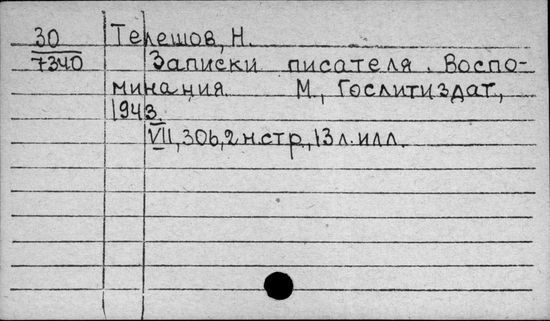 30 Телешов, Н.
7340 Записки писателя. Воспо-
минания М., Гослитиздат,
1943.
VII, 306, 2 н.стр., 13 л. илл.